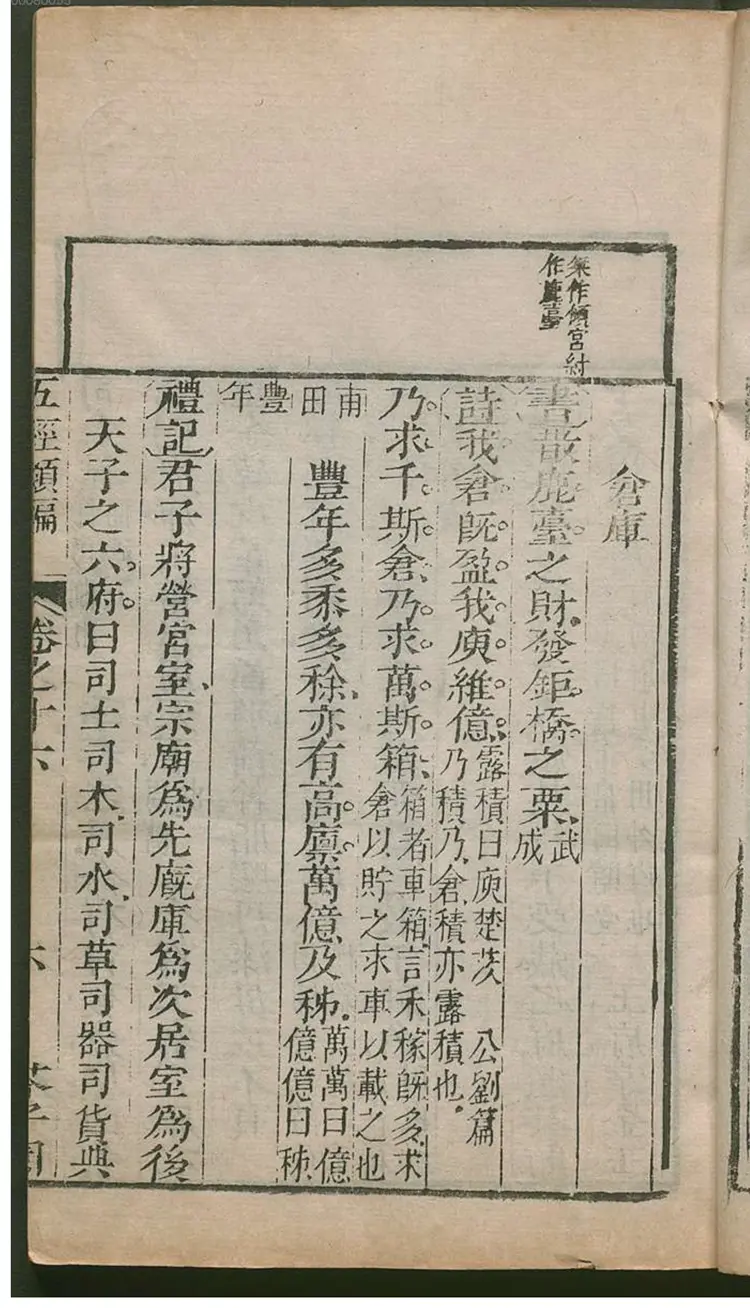 桀作傾宮紂
作鹿臺
倉庫
書散鹿臺之財發鉅橋之粟武
成
詩我倉旣盈我庾維億露積曰庾楚茨 公劉篇
乃積乃倉積亦露積也
乃求千斯倉乃求萬斯箱箱者車箱言禾稼旣多求
倉以貯之求車以載之也
甫
田
豐年多黍多稌亦有高廩萬億及秭萬萬曰億
億億曰秭
豐
年
禮記君子將營宮室宗廟爲先廐庫爲次居室爲後
天子之六府曰司土司木司水司草司器司貨典
五經類編 卷之十六 六